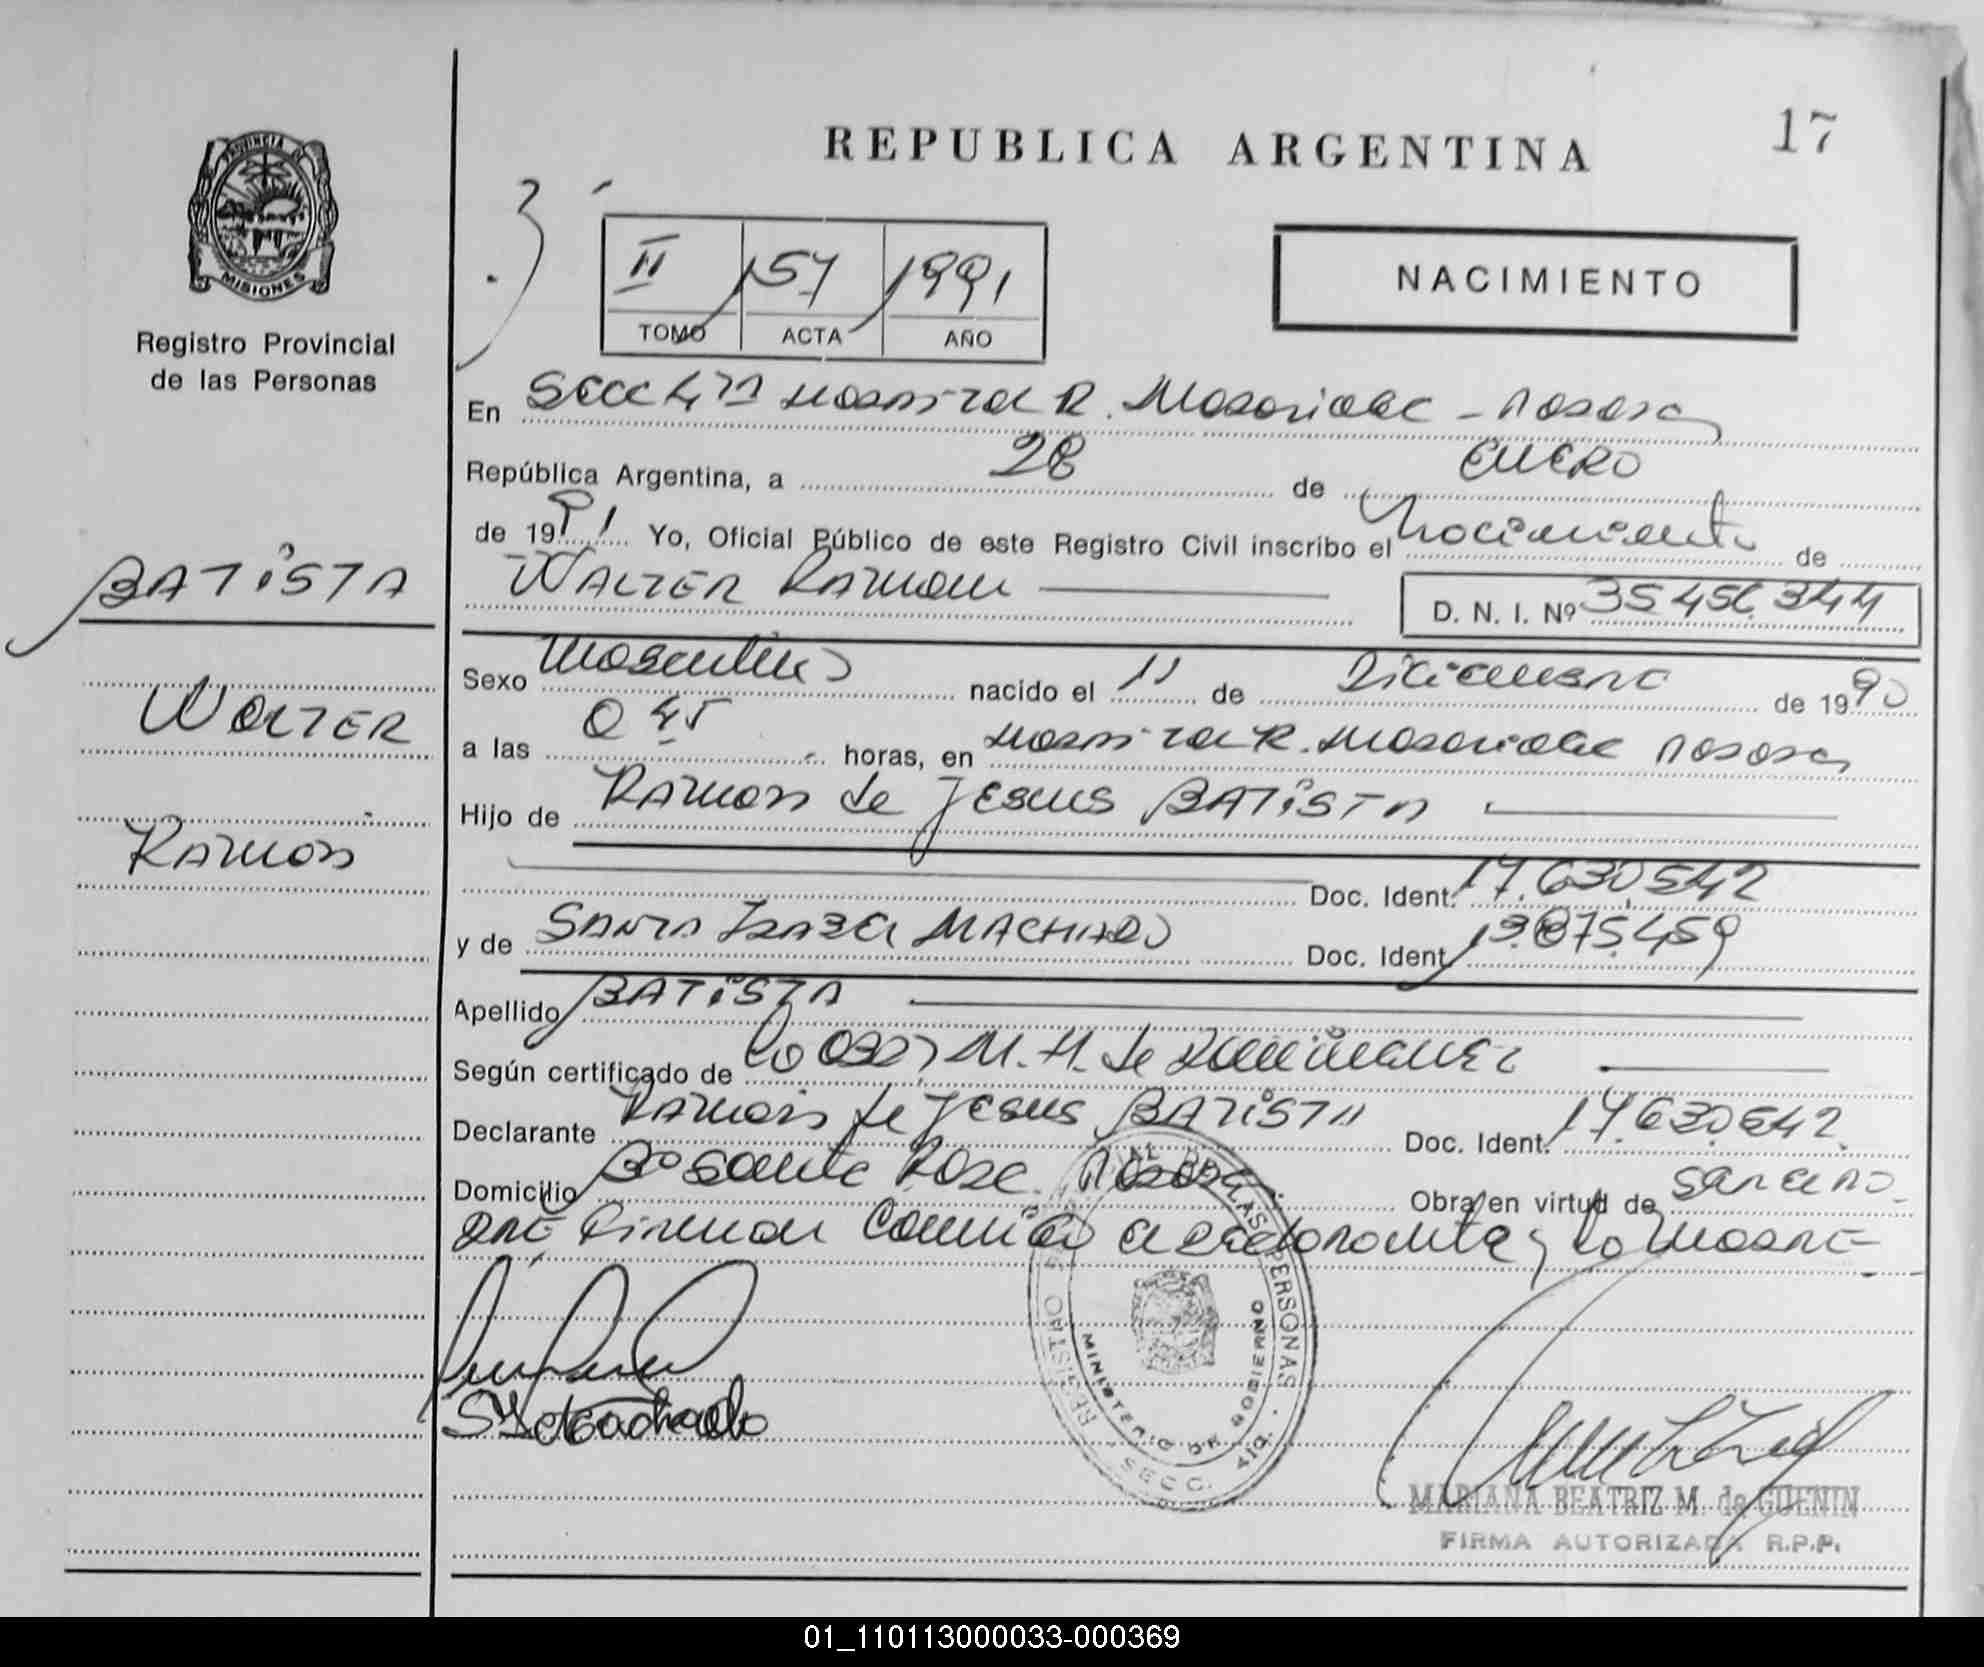 REPUBLICA ARGENTINA
17
PROVINCIA DE
MISIONES
Registro Provincial
de las Personas
II 157 1991
TOMO ACTA AÑO
NACIMIENTO
En Secc 4ta R. Madariaga - Posadas
República Argentina, a 28 de ENERO
de 1991 Yo, Oficial Público de este Registro Civil inscribo el Nacimiento de
WALTER RAMON
D. N. I. Nº 35.456.344
BATISTA
WALTER
RAMON
Sexo Masculino nacido el 11 de Diciembre de 1990
a las 0 45 horas, en Hospital R. Madariaga Posadas
Hijo de RAMON de JESUS BATISTA
Doc. Ident. 17.630.542
y de SANTA ISABEL MACHADO Doc. Ident. 13.875.459
Apellido BATISTA
Según certificado de M. H. de
Declarante RAMON de JESUS BATISTA Doc. Ident. 17.630.542
Domicilio Bº Santa Rosa Posadas Obra en virtud de
Firman la Madre
REGISTRO PROVINCIAL DE LAS PERSONAS
MINISTERIO DE GOBIERNO
SECC.
MARIANA BEATRIZ M. de GUENIN
FIRMA AUTORIZADA R.P.P.
01_110113000033-000369